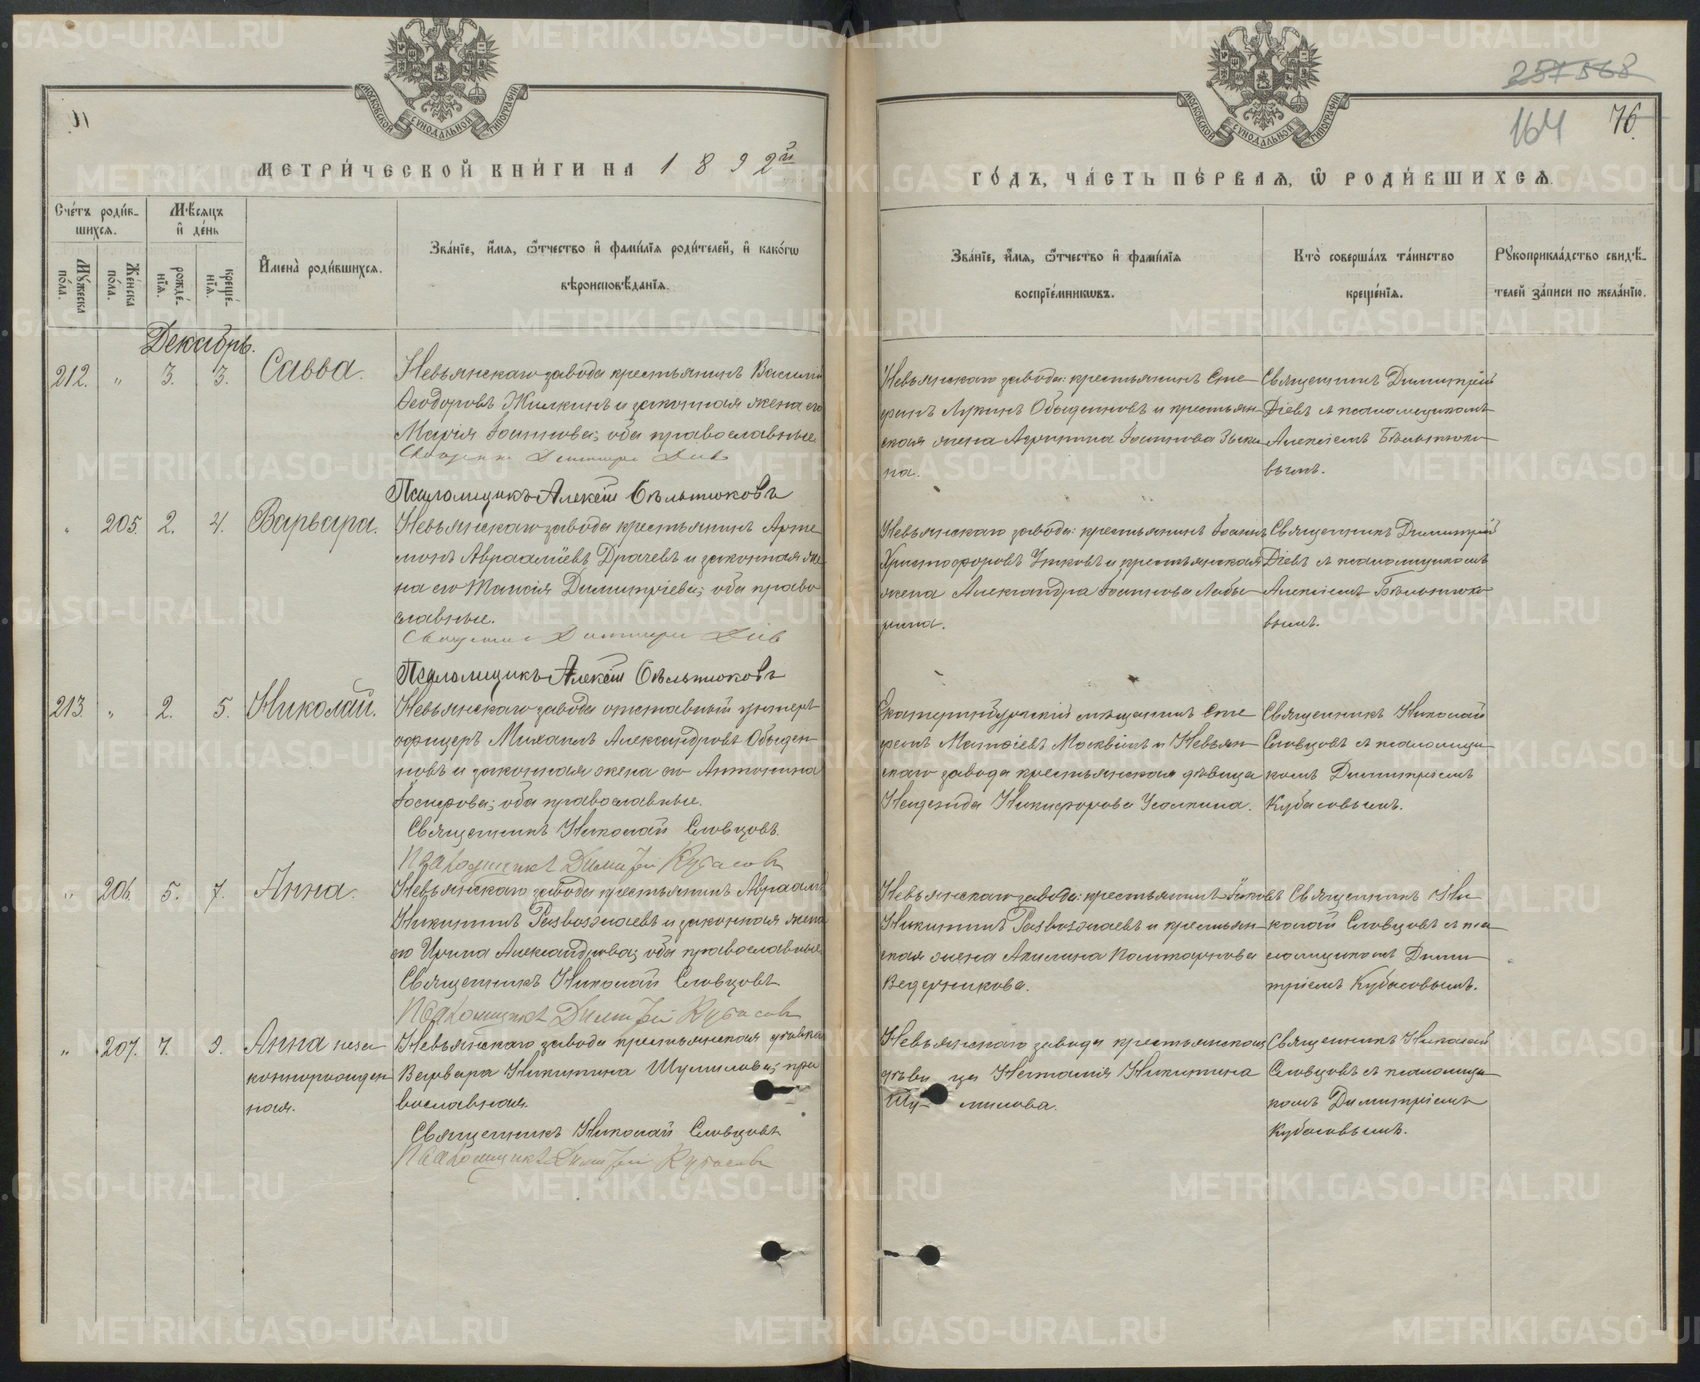 МЕТРИ́ЧЕСКОЙ КНИ́ГИ НА 1892й
Сче́тъ роди́вшихся.
Мꙋ́жеска по́ла.
Же́нска по́ла.
Мѣ́сяцъ и҆ де́нь
рожде́нїѧ.
креще́нїѧ.
И҆мена̀ роди́вшихсѧ.
Зва́нїе, и҆́мѧ, ѻ҆́тчество и҆ фами́лїѧ роди́телей, и҆ како́гѡ
вѣроисповѣ́данїѧ.
Декабрь.
212. " 3. 3. Савва.
Невьянскаго завода крестьянинъ Василій
Ѳеодоровъ Жилкинъ и законная жена его
Марія Іоаннова; оба православные.
Псаломщикъ Алексій Бѣльтюковъ
" 205. 2. 4. Варвара.
Невьянскаго завода крестьянинъ Арте-
монъ Авраамiевъ Драчевъ и законная же-
на его Таисія Димитріева; оба право-
славные.
Псаломщикъ Алексій Бѣльтюковъ
213. " 2. 5. Николай.
Невьянскаго завода отставный унтеръ-
офицеръ Михаилъ Александровъ Обыден-
новъ и законная жена его Антонина
Іосифова; оба православные.
Священникъ Николай Словцовъ.
Псаломщикъ Димитрій Кубасовъ
" 206. 5. 7. Анна.
Невьянскаго завода крестьянинъ Авраамъ
Никитинъ Развозжаевъ и законная жена
его Ирина Александрова; оба православные.
Священникъ Николай Словцовъ.
Псаломщикъ Димитрій Кубасовъ
" 207. 7. 9. Анна неза-
коннорожден-
ная.
Невьянскаго завода крестьянская дѣвка
Варвара Никитина Шумилова; пра-
вославная.
Священникъ Николай Словцовъ
Псаломщикъ Димитрій Кубасовъ
164
76.
ГО́ДЪ, ЧА́СТЬ ПЕ́РВАѦ, Ѡ҆ РОДИ́ВШИХСѦ.
Зва́нїе, и҆́мѧ, ѻ҆́тчество и҆ фами́лїѧ
воспрїе́мникѡвъ.
Кто̀ соверша́лъ та́инство
креще́нїѧ.
Рꙋкоприкла́дство свидѣ́-
телей за́писи по жела́нїю.
Невьянскаго завода: крестьянинъ Сте-
фанъ Лукинъ Обыденновъ и крестьян-
ская жена Агрипина Іоаннова Зыки-
на.
Священникъ Димитрій
Діевъ съ псаломщикомъ
Алексіемъ Бѣльтюко-
вымъ.
Невьянскаго завода: крестьянинъ Іоаннъ
Христофоровъ Утковъ и крестьянская
жена Александра Іоаннова Лабы-
рина.
Священникъ Димитрій
Діевъ съ псаломщикомъ
Алексіемъ Бѣльтюко-
вымъ.
Екатеринбургскій мѣщанинъ Сте-
фанъ Матѳіевъ Москвинъ и Невьян-
скаго завода крестьянская дѣвица
Надежда Никифорова Усолкина.
Священникъ Николай
Словцовъ съ псаломщи-
комъ Димитріемъ
Кубасовымъ.
Невьянскаго завода: крестьянинъ Іаковъ
Никитинъ Развозжаевъ и крестьян-
ская жена Акилина Поликарпова
Ведерникова.
Священникъ Ни-
колай Словцовъ съ пса-
ломщикомъ Дими-
тріемъ Кубасовымъ.
Невьянскаго завода крестьянская
дѣвица Наталія Никитина
Шумилова.
Священникъ Николай
Словцовъ съ псаломщи-
комъ Димитріемъ
Кубасовымъ.